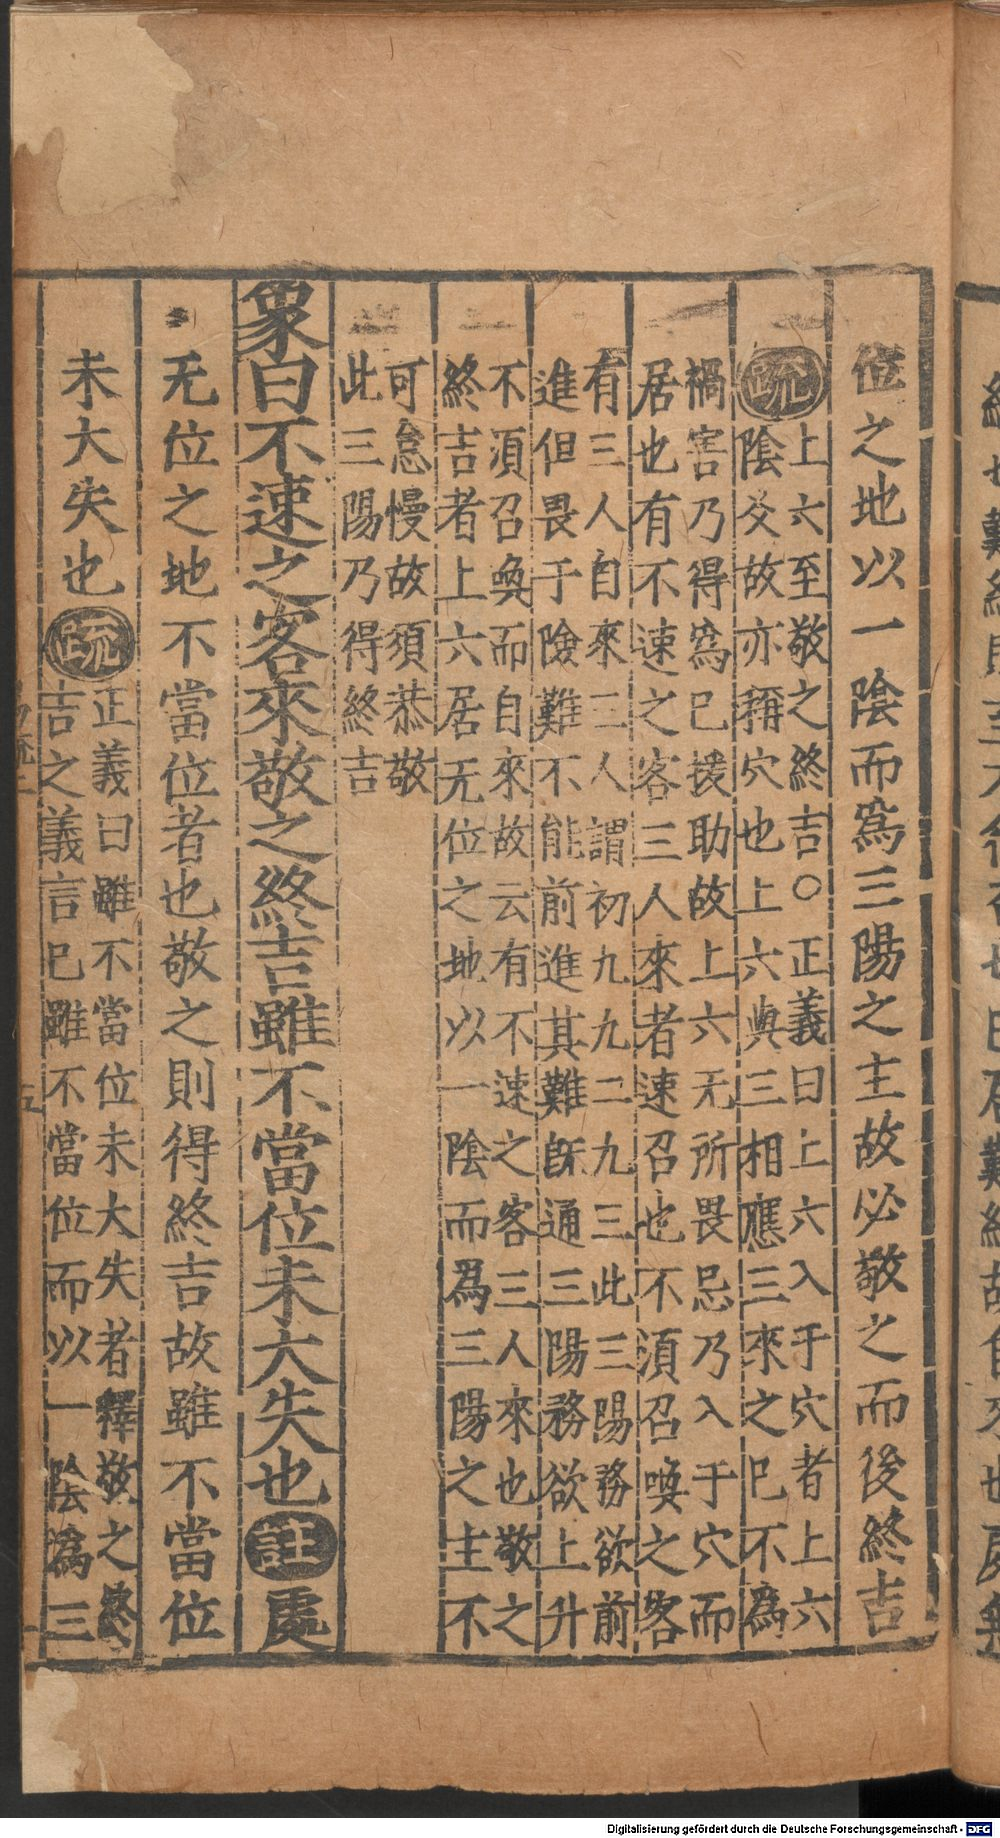 位之地以一陰而爲三陽之主故必敬之而後終吉
疏
上六至敬之終吉○正義曰上六入于穴者上六
陰爻故亦稱穴也上六與三相應三來之已不為
禍害乃得爲已援助故上六无所畏忌乃入于穴而
居也有不速之客三人來者速召也不須召喚之客
有三人自來三人謂初九九二九三此三陽務欲前
進但畏于險難不能前進其難旣通三陽務欲上升
不須召喚而自來故云有不速之客三人來也敬之
終吉者上六居无位之地以一陰而爲三陽之主不
可怠慢故須恭敬
此三陽乃得終吉
象曰不速之客來敬之終吉雖不當位未大失也註處
无位之地不當位者也敬之則得終吉故雖不當位
未大失也疏
正義曰雖不當位未大失者釋敬之終
吉之義言已雖不當位而以一陰爲三
Digitalisierung gefördert durch die Deutsche Forschungsgemeinschaft - DFG